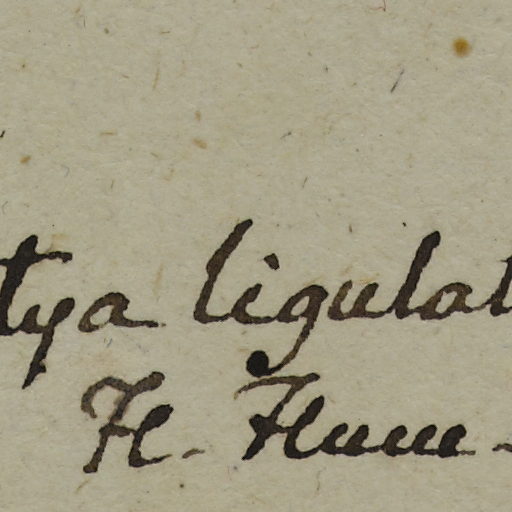 tya ligulat
Fl. Flum-